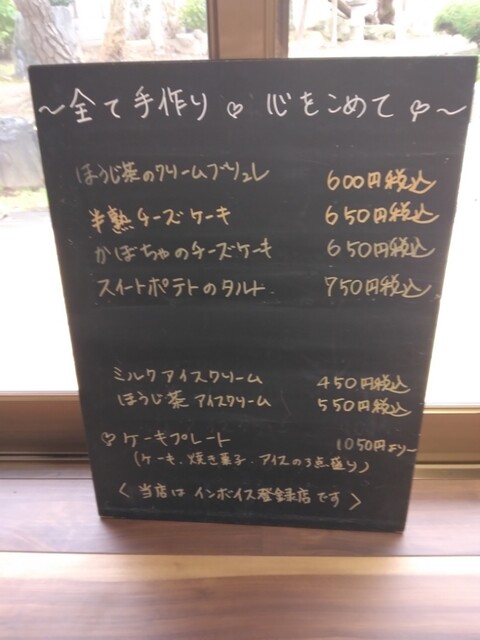 ～全て手作り♡心をこめて♡～
ほうじ茶のクリームブリュレ 600円税込
半熟チーズケーキ 650円税込
かぼちゃのチーズケーキ 650円税込
スイートポテトのタルト 750円税込
ミルクアイスクリーム 450円税込
ほうじ茶アイスクリーム 550円税込
♡ケーキプレート 1050円より〜
(ケーキ・焼き菓子・アイスの3点盛り)
〈当店はインボイス登録店です〉